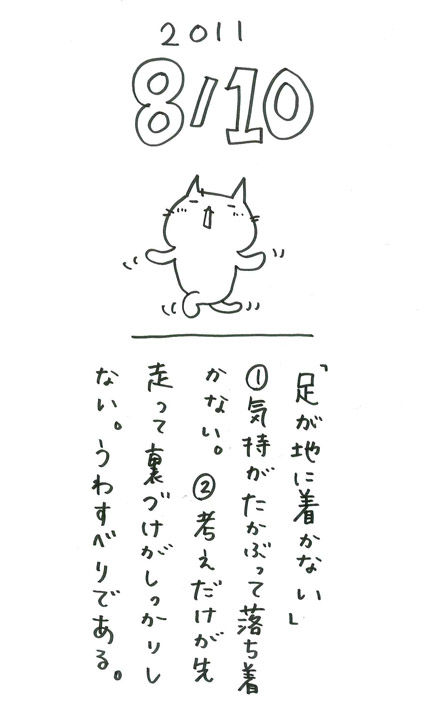 2011
8/10
「足が地に着かない」
①気持がたかぶって落ち着
かない。②考えだけが先
走って裏づけがしっかりし
ない。うわすべりである。